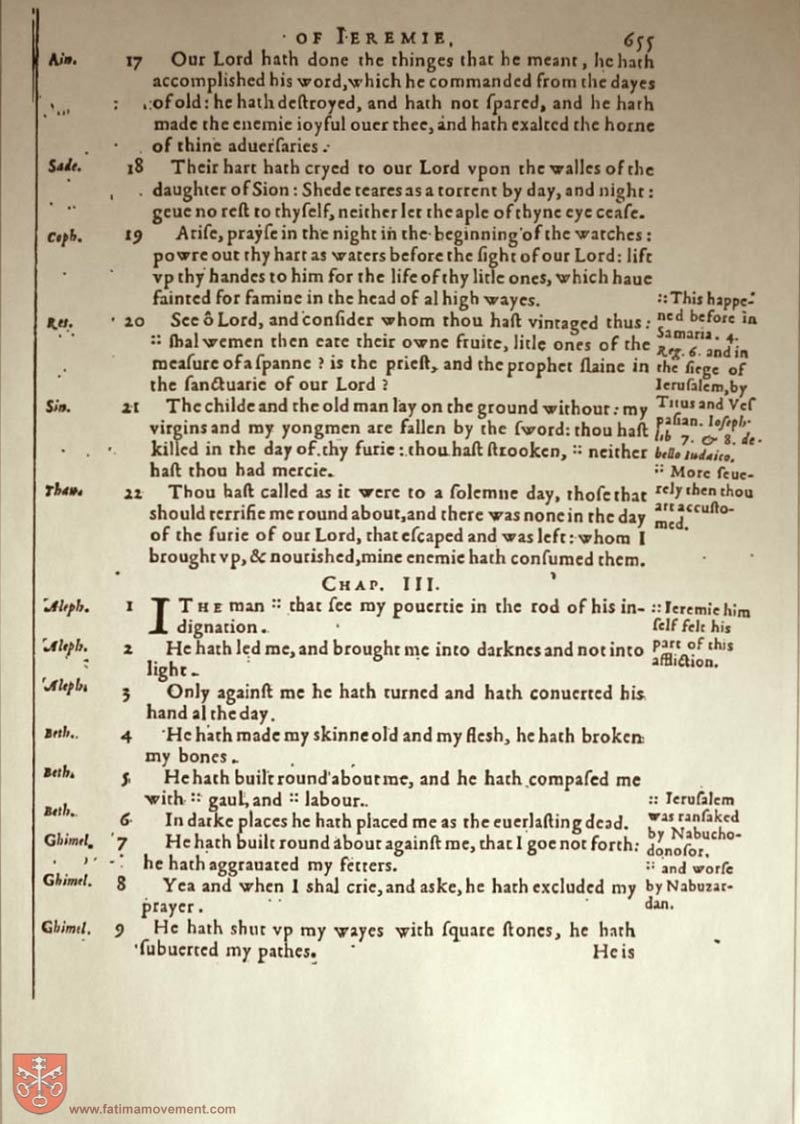 OF IEREMIE, 655
Ain. 17 Our Lord hath done the thinges that he meant, he hath
accomplished his word, which he commanded from the dayes
of old: he hath deſtroyed, and hath not ſpared, and he hath
made the enemie ioyful ouer thee, and hath exalted the horne
of thine aduerſaries.
Sade. 18 Their hart hath cryed to our Lord vpon the walles of the
daughter of Sion: Shede teares as a torrent by day, and night:
geue no reſt to thyſelf, neither let the aple of thyne eye ceaſe.
Coph. 19 Ariſe, prayſe in the night in the beginning of the watches:
powre out thy hart as waters before the ſight of our Lord: lift
vp thy handes to him for the life of thy litle ones, which haue
fainted for famine in the head of al high wayes.
Res. 20 See ô Lord, and conſider whom thou haſt vintaged thus:
:: ſhal wemen then eate their owne fruite, litle ones of the
meaſure of a ſpanne? is the prieſt, and the prophet ſlaine in
the ſanctuarie of our Lord?
:: This happe-
ned before in
Samaria. 4.
Reg. 6. and in
the ſiege of
Ieruſalem, by
Titus and Veſ
paſian. Ioſeph.
lib 7. & 8. de
bello Iudaico.
Sin. 21 The childe and the old man lay on the ground without: my
virgins and my yongmen are fallen by the ſword: thou haſt
killed in the day of thy furie: thou haſt ſtrooken, :: neither
haſt thou had mercie.
:: More ſeue-
rely then thou
art accuſto-
med.
Thau. 22 Thou haſt called as it were to a ſolemne day, thoſe that
should terrifie me round about, and there was none in the day
of the furie of our Lord, that eſcaped and was left: whom I
brought vp, & nouriſhed, mine enemie hath conſumed them.
CHAP. III.
Aleph. 1 I THE man :: that ſee my pouertie in the rod of his in-
dignation.
:: Ieremie him
ſelf felt his
part of this
affliction.
Aleph. 2 He hath led me, and brought me into darknes and not into
light.
Aleph. 3 Only againſt me he hath turned and hath conuerted his
hand al the day.
Beth. 4 He hath made my skinne old and my flesh, he hath broken
my bones.
Beth. 5 He hath built round about me, and he hath compaſed me
with :: gaul, and :: labour.
Beth. 6 In darke places he hath placed me as the euerlaſting dead.
Ghimel. 7 He hath built round about againſt me, that I goe not forth:
he hath aggrauated my fetters.
:: Ieruſalem
was ranſaked
by Nabucho-
donoſor.
:: and worſe
by Nabuzar-
dan.
Ghimel. 8 Yea and when I shal crie, and aske, he hath excluded my
prayer.
Ghimel. 9 He hath shut vp my wayes with ſquare ſtones, he hath
ſubuerted my pathes.
He is
www.fatimamovement.com